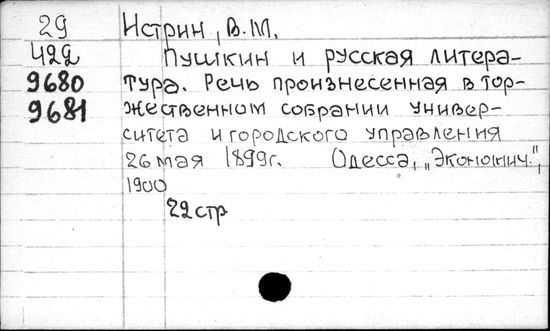 29 Истрин, В.М.
422 Пушкин и русская литера-
9680 тура. Речь произнесенная в тор-
9681 жественном собрании универ-
ситета и городского управления
26 мая 1899г. Одесса, „Экономич.",
1900
22 стр